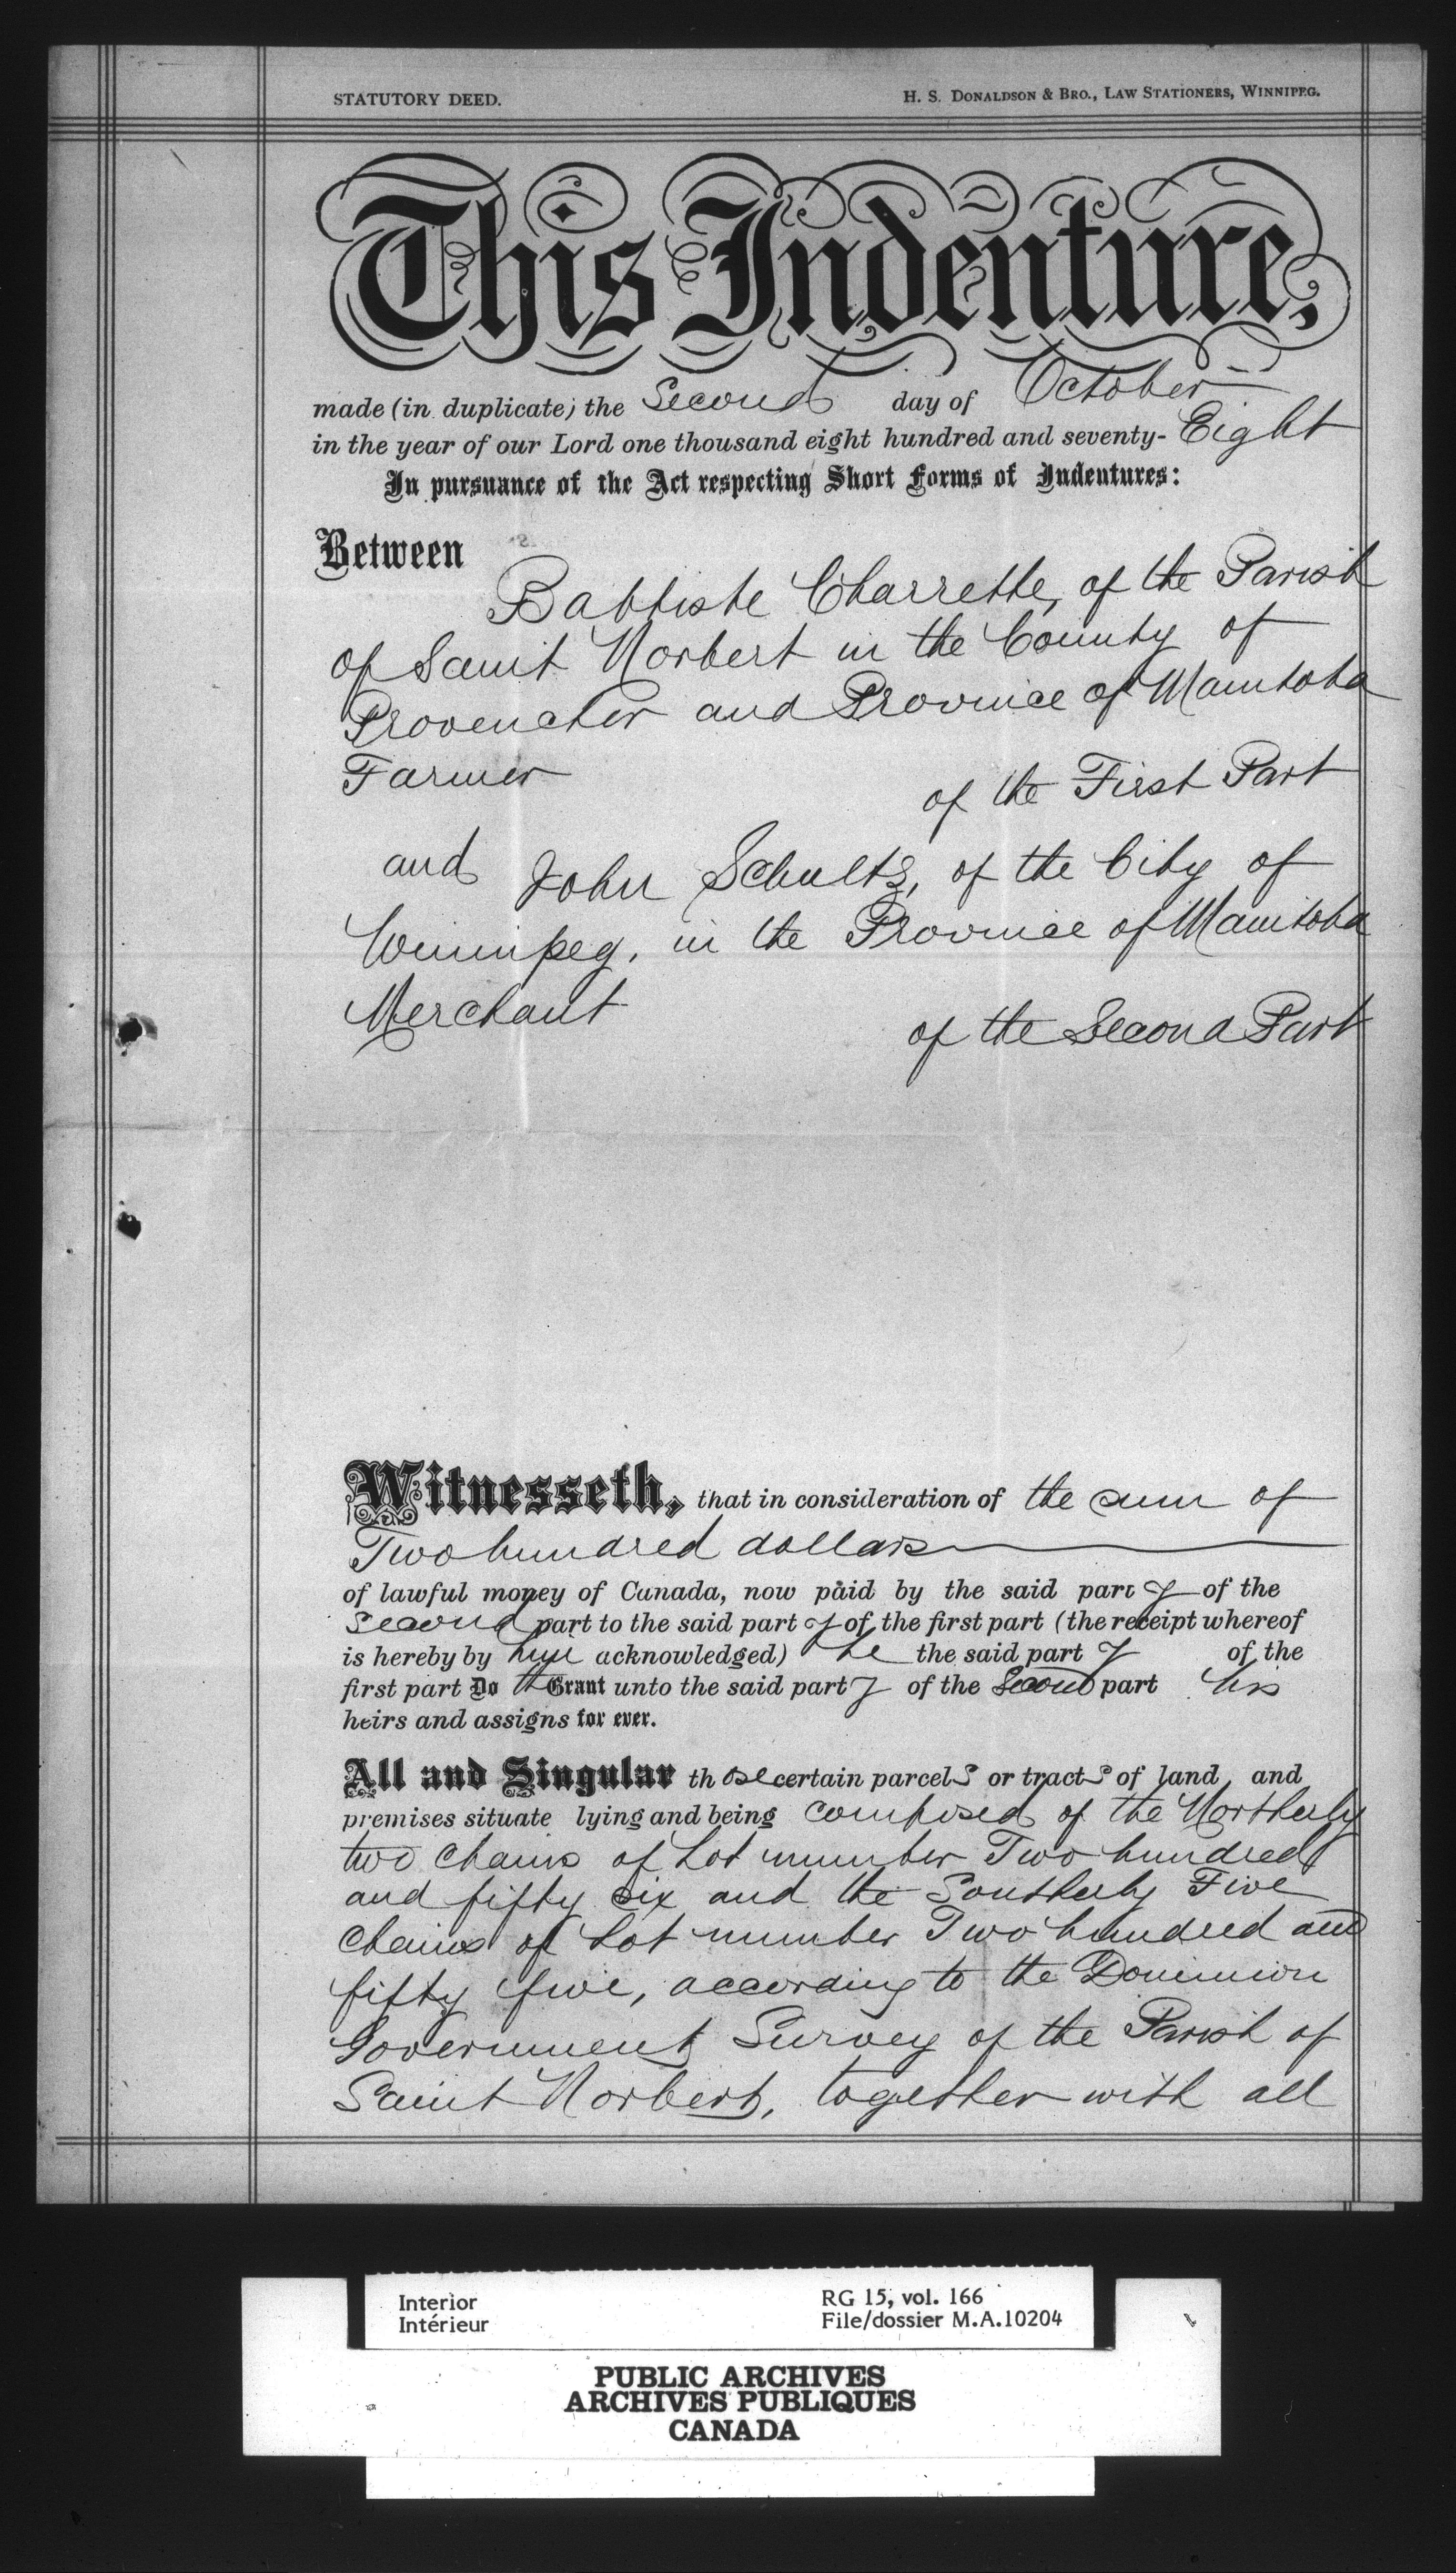 STATUTORY DEED.
H. S. DONALDSON & BRO., LAW STATIONERS, WINNIPEG.
This Indenture,
made (in duplicate) the Second day of October
in the year of our Lord one thousand eight hundred and seventy- Eight
In pursuance of the Act respecting Short Forms of Indentures:
Between
Babtiste Charrette, of the Parish
of Saint Norbert in the County of
Provencher and Province of Manitoba
Farmer
of the First Part
and John Schultz, of the City of
Winnipeg, in the Province of Manitoba
Merchant
of the Second Part
Witnesseth, that in consideration of the sum of
Two hundred dollars
of lawful money of Canada, now paid by the said part y of the
second part to the said part y of the first part (the receipt whereof
is hereby by him acknowledged) he the said part y of the
first part Do th Grant unto the said part y of the Second part his
heirs and assigns for ever.
All and Singular those certain parcels or tracts of land and
premises situate lying and being composed of the Northerly
two chains of Lot number Two hundred
and fifty six and the Southerly Five
chains of Lot number Two hundred and
fifty five, according to the Dominion
Government Survey of the Parish of
Saint Norbert, together with all
Interior
Intérieur
RG 15, vol. 166
File/dossier M.A.10204
PUBLIC ARCHIVES
ARCHIVES PUBLIQUES
CANADA